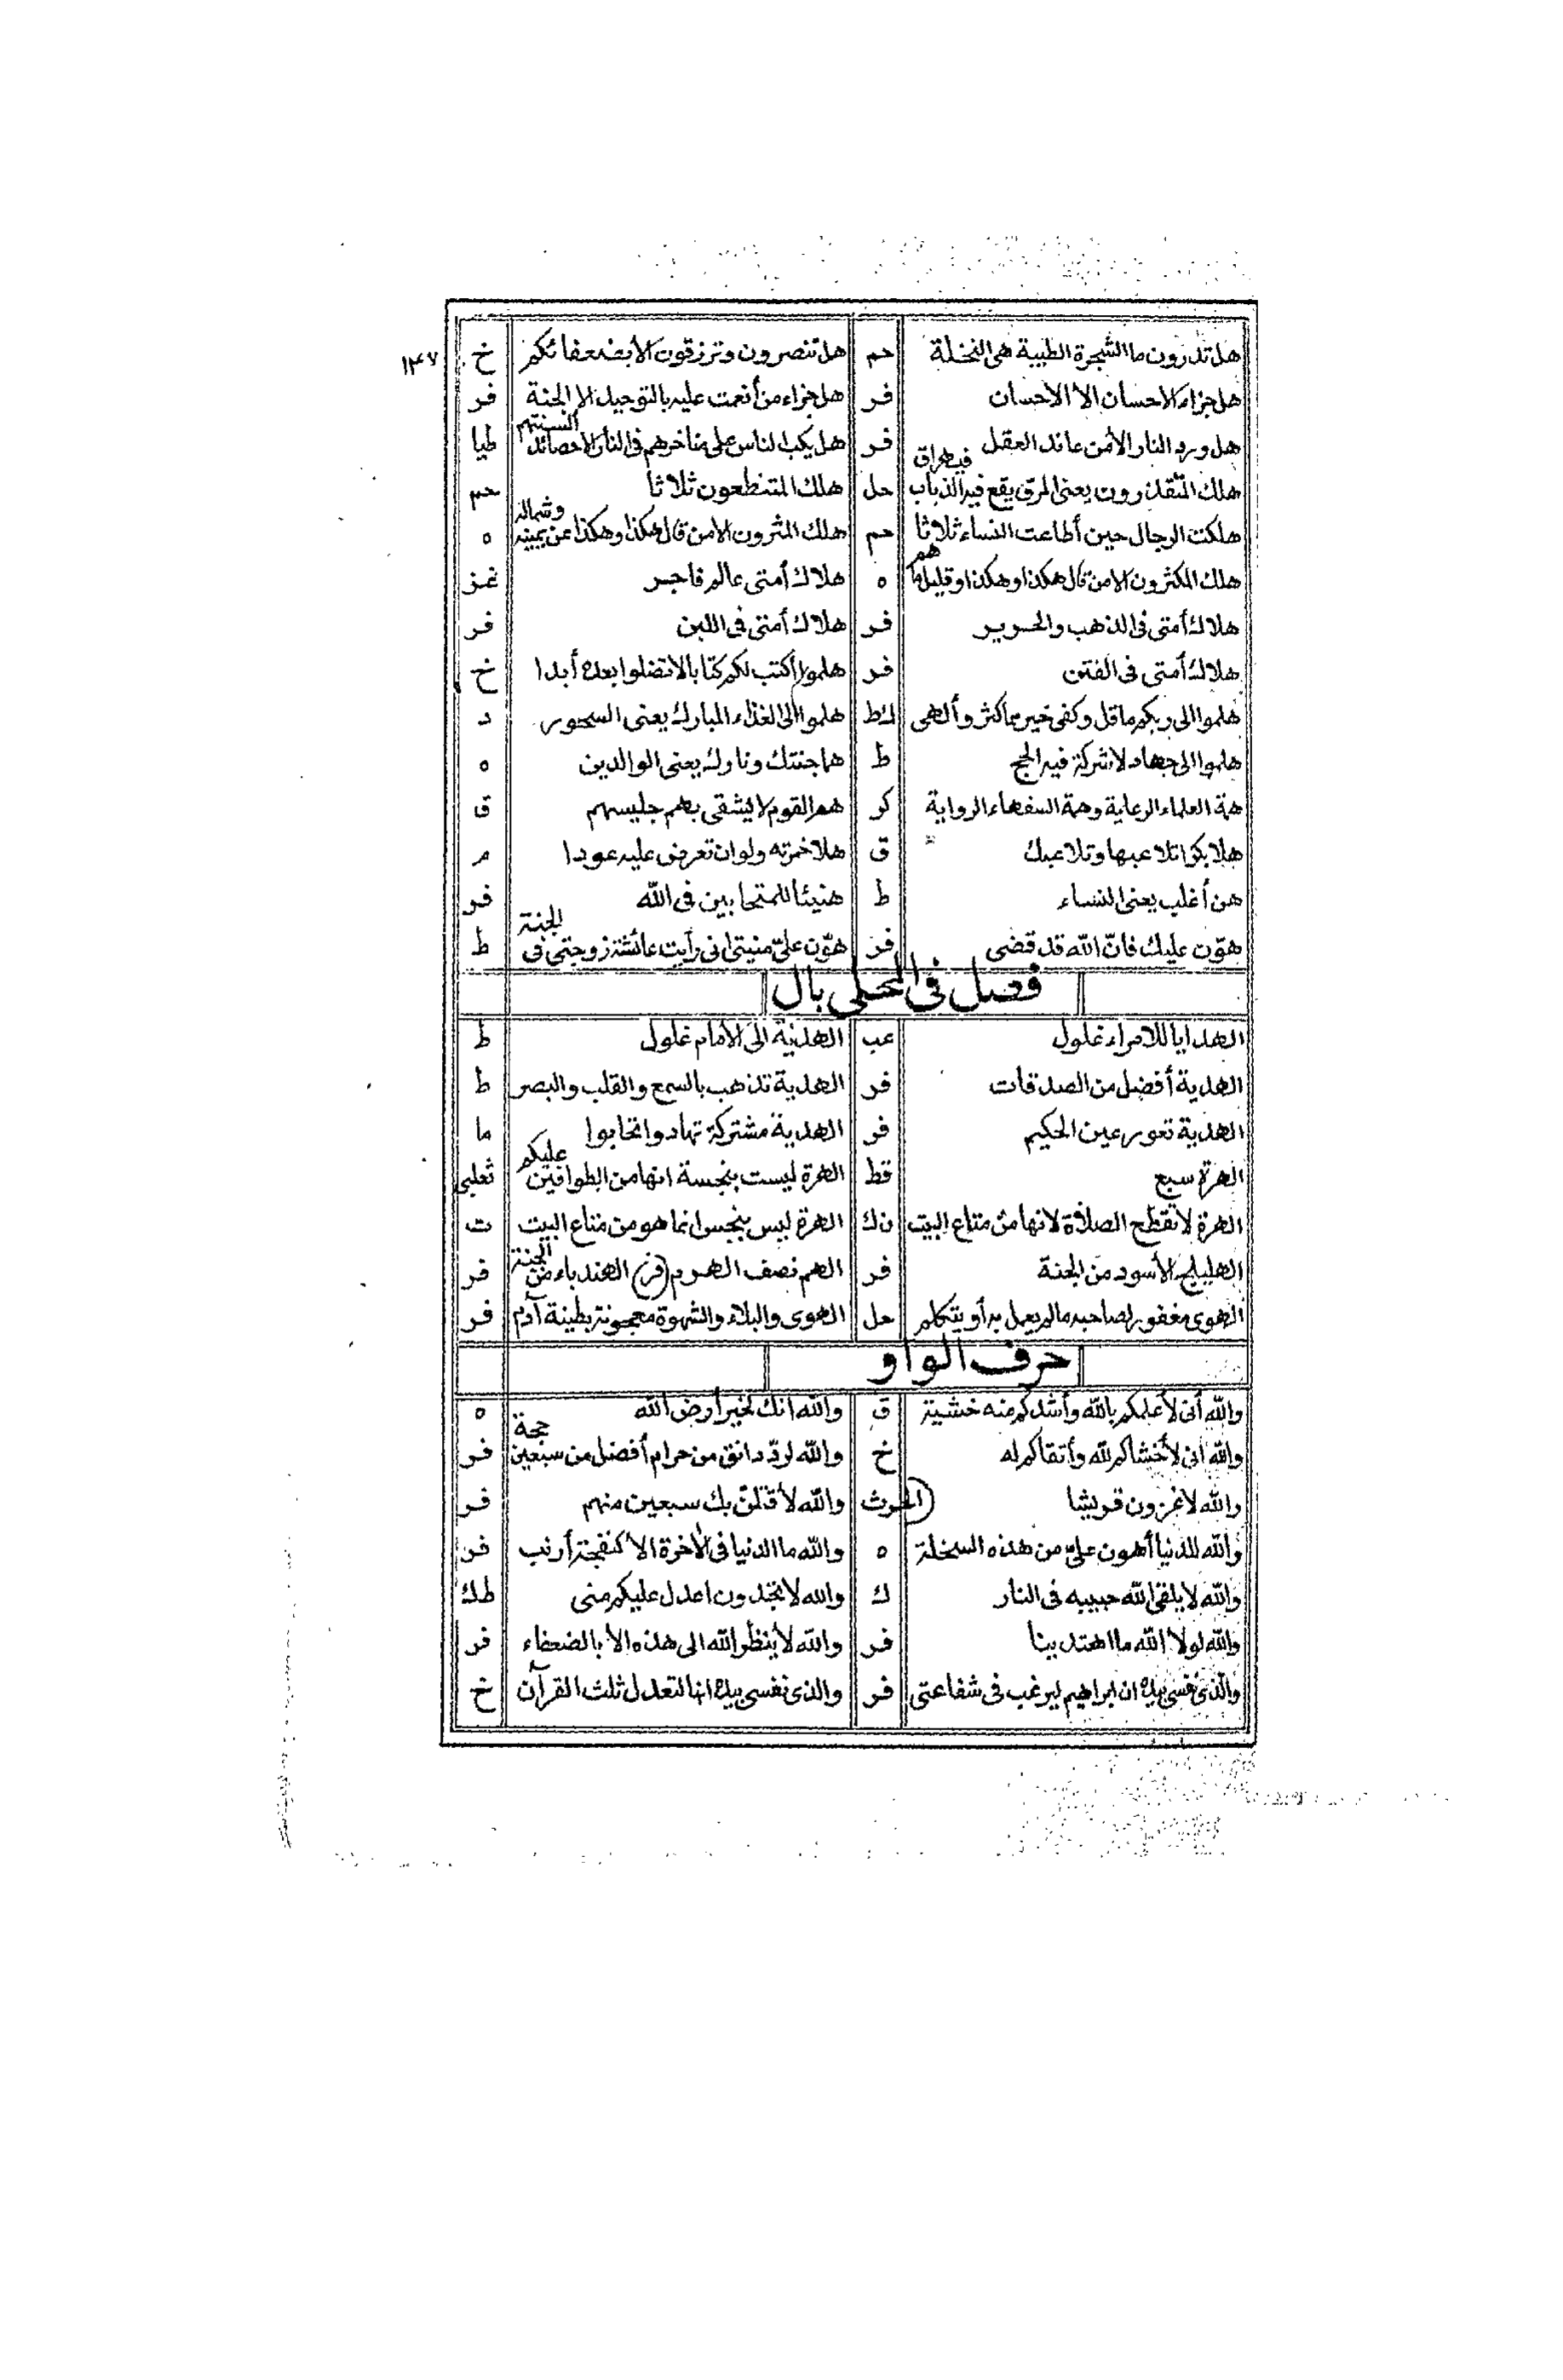 ١٣٧
هل تدرون ما الشجرة الطيبة هى النخلة حم هل تنصرون وترزقون الا بضعفائكم خ
هل جزاء الاحسان الا الاحسان فر هل جزاء من أنعمت عليه بالتوحيد الا الجنة فر
هل ورد النار الا من عاند العقل فر هل يكب الناس على مناخرهم فى النار الا حصائد ألسنتهم طيا
هلك المتقذرون يعنى المرق يقع فيه الذباب فيهراق حل هلك المتنطعون ثلاثا حم
هلكت الرجال حين أطاعت النساء ثلاثا حم هلك المثرون الا من قال هكذا وهكذا عن يمينه وشماله ه
هلك المكثرون الا من قال هكذا وهكذا وقليل ما هم ه هلاك أمتى عالم فاجر غز
هلاك أمتى فى الذهب والحرير فر هلاك أمتى فى اللبن فر
هلاك أمتى فى الفتن فر هلموا أكتب لكم كتابا لا تضلوا بعده أبدا خ
هلموا الى ربكم ما قل وكفى خير مما كثر وألهى كط هلموا الى الغذاء المبارك يعنى السحور د
هلموا الى جهاد لا شركة فيه الحج ط هما جنتك ونارك يعنى الوالدين ه
همة العلماء الرعاية وهمة السفهاء الرواية كر هم القوم لا يشقى بهم جليسهم ق
هلا بكرا تلاعبها وتلاعبك ق هلا خمرته ولو ان تعرض عليه عودا م
هن أغلب يعنى النساء ط هنيئا للمتحابين فى الله فر
هوّن عليك فانّ الله قد قضى فر هوّن علىّ منيتى انى رأيت عائشة زوجتى فى الجنة ط
فصل فى المحلى بال
الهدايا للامراء غلول عب الهدية الى الامام غلول ط
الهدية أفضل من الصدقات فر الهدية تذهب بالسمع والقلب والبصر ط
الهدية تعور عين الحكيم فر الهدية مشتركة تهادوا تحابوا ما
الهرة سبع قط الهرة ليست بنجسة انها من الطوافين عليكم ثعلبى
الهرة لا تقطع الصلاة لانها من متاع البيت ن ك الهرة ليس بنجس انما هو من متاع البيت ت
الهليلج الأسود من الجنة فر الهم نصف الهرم (فر) الهندباء من الجنة فر
الهوى مغفور لصاحبه ما لم يعمل به أو يتكلم حل الهوى والبلاء والشهوة معجونة بطينة آدم فر
حرف الواو
والله أنى لأعلمكم بالله وأشدكم منه خشية ق والله انك لخير أرض الله ه
والله انى لأخشاكم لله وأتقاكم له خ والله لردّ دانق من حرام أفضل من سبعين حجة فر
والله لأغزون قريشا (الحرث والله لأقتلنّ بك سبعين منهم فر
والله للدنيا أهون علىّ من هذه السخلة ه والله ما الدنيا فى الآخرة الا كنفجة أرنب فر
والله لا يلقى الله حبيبه فى النار ك والله لا تجدون اعدل عليكم منى ط ك
والله لولا الله ما اهتدينا فر والله لا ينظر الله الى هذه الا بالضعفاء فر
والذى نفسى بيده ان ابراهيم ليرغب فى شفاعتى فر والذى نفسى بيده انها لتعدل ثلث القرآن خ